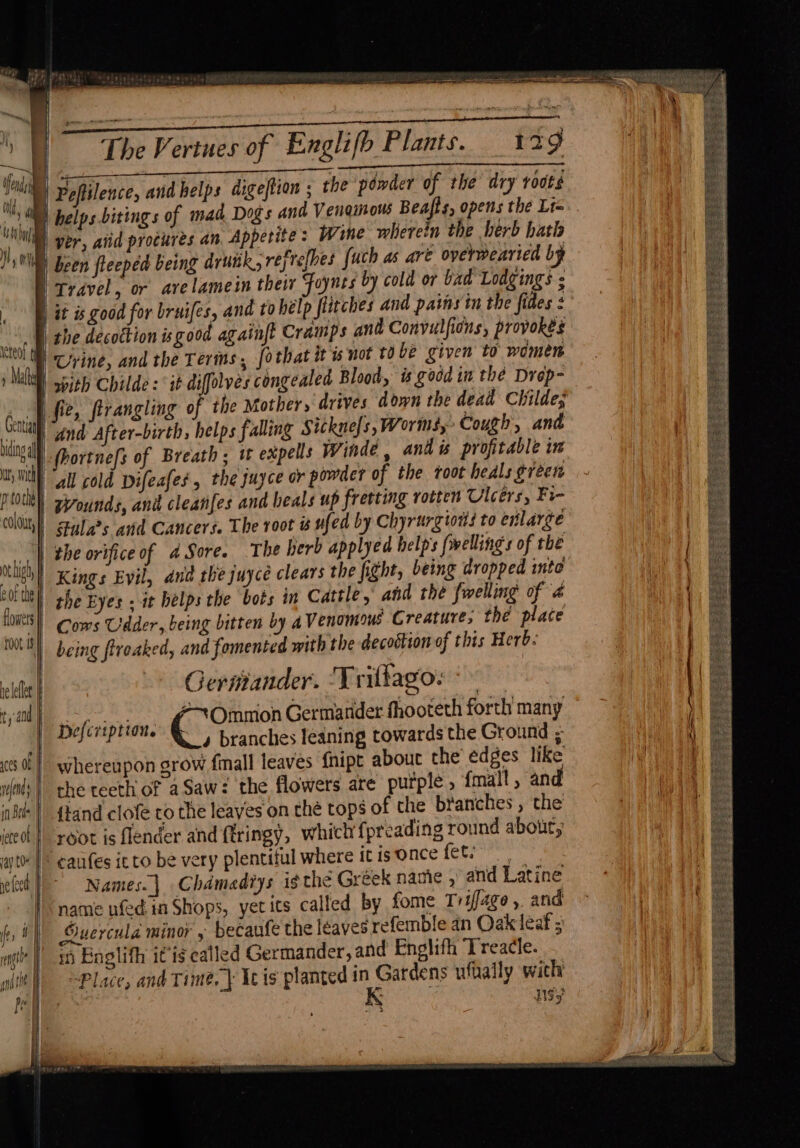 The Vertues of Engliſh Plants. 129
Peſtilence, and helps digeſtion ; the powder of the dry roots
helps bitings of mad Dogs and Venomous Beaſts, opens the Li-
ver, and procures an Appetite : Wine wherein the herb hath
been ſteeped being drunk, refreſhes ſuch as are overwearied by
Travel, or are lame in their Joynts by cold or bad Lodgings ;
it is good for bruiſes, and to help ſtitches and pains in the ſides :
the decoction is good againſt Cramps and Convulſions, provokes
Urine, and the Terms, ſo that it is not to be given to women
with Childe : it diſſolves congealed Blood, is good in the Drop-
ſie, ſtrangling of the Mother, drives down the dead Childe,
and After-birth, helps falling Sickneſs, Worms, Cough, and
ſhortneſs of Breath ; it expells Winde, and is profitable in
all cold Diſeaſes, the juyce or powder of the root heals green
Wounds, and cleanſes and heals up fretting rotten Ulcers, Fi-
ſtula's and Cancers. The root is uſed by Chyrurgions to enlarge
the orifice of a Sore. The herb applyed helps ſwellings of the
Kings Evil, and the juyce clears the ſight, being dropped into
the Eyes ; it helps the bots in Cattle, and the ſwelling of a
Cows Udder, being bitten by a Venomous Creature, the place
being ſtroaked, and fomented with the decoction of this Herb.
Germander. Triſſago.
Deſcription. COmmon Germander ſhooteth forth many
branches leaning towards the Ground ;
whereupon grow ſmall leaves ſnipt about the edges like
the teeth of a Saw : the flowers are purple, ſmall, and
ſtand cloſe to the leaves on the tops of the branches, the
root is ſlender and ſtringy, which ſpreading round about,
cauſes it to be very plentiful where it is once ſet.
Names.] Chamædrys is the Greek name, and Latine
name uſed in Shops, yet its called by ſome Triſſago, and
Quercula minor, becauſe the leaves reſemble an Oak leaf ;
in Engliſh it is called Germander, and Engliſh Treacle.
Place, and Time.] It is planted in Gardens uſually with
K us,